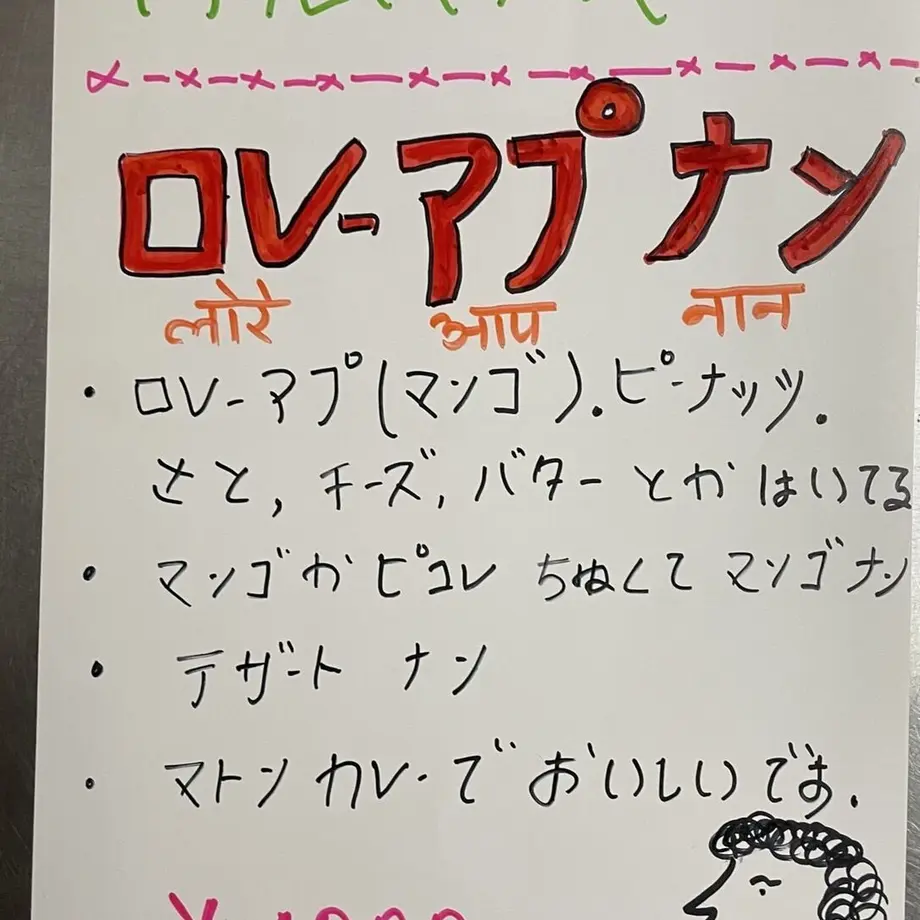 ロレーアプ ナン
लोरे आप नान
・ロレーアプ(マンゴ).ピーナッツ.
さと, チーズ, バター とか はいてる
・マンゴ か ピコレ ちぬくて マンゴナン
・デザート ナン
・マトン カレーで おいしいです.